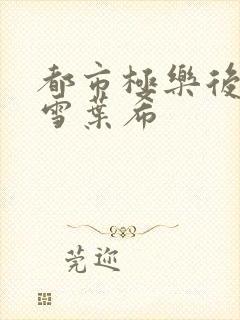 都市極樂後
雪葉希
莞迩